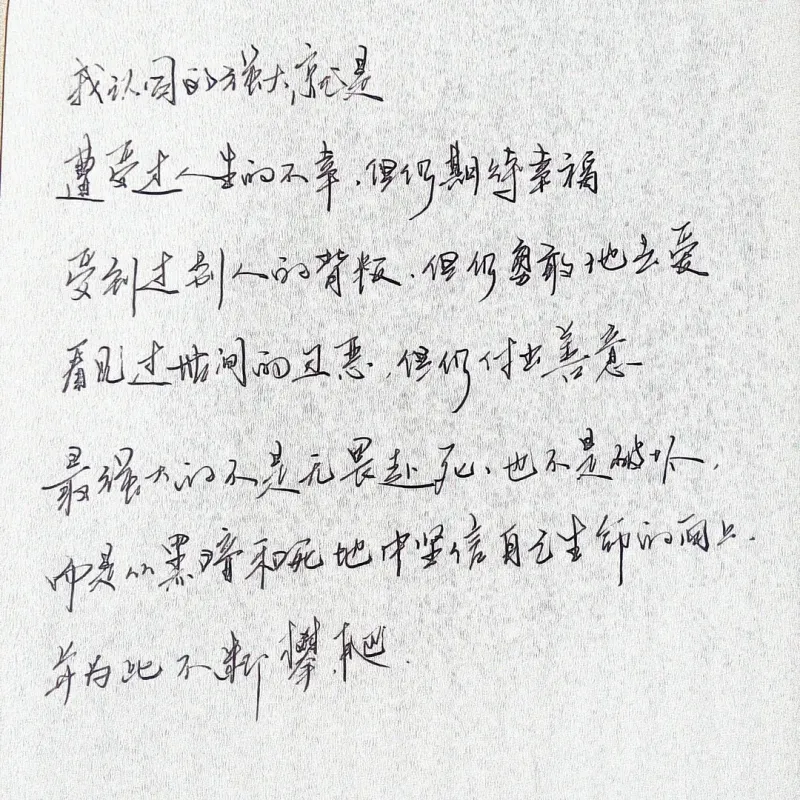 我认同的强大,就是
遭受过人生的不幸,但仍期待幸福
受到过别人的背叛,但仍勇敢地去爱
看见过世间的丑恶,但仍付出善意
最强大的不是无畏赴死、也不是破坏,
而是从黑暗和死地中坚信自己生命的向上.
并为此不断攀爬.